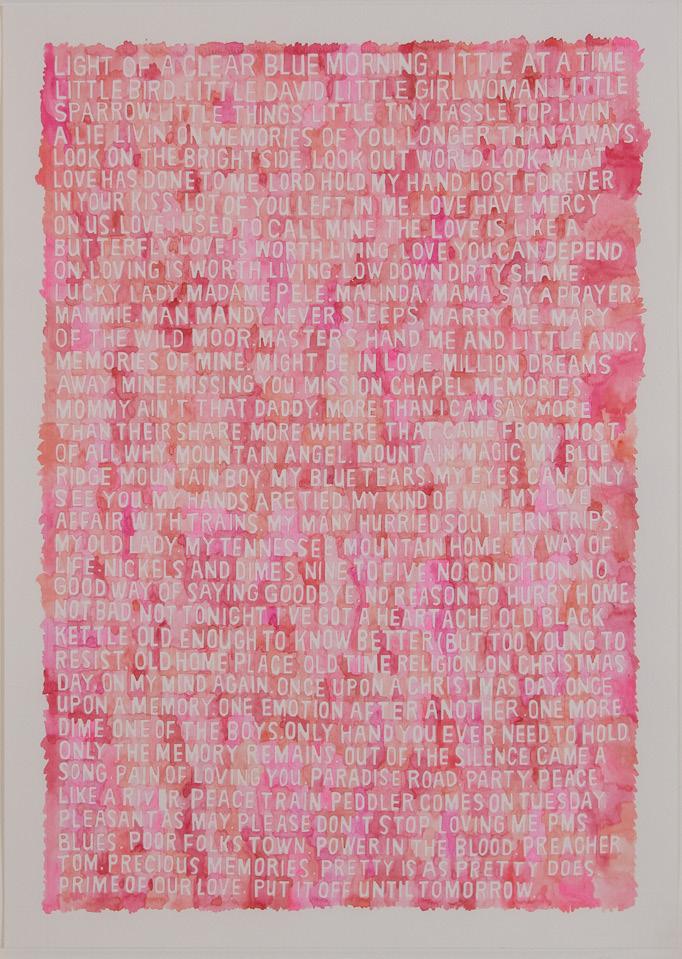 LIGHT OF A CLEAR BLUE MORNING. LITTLE AT A TIME
LITTLE BIRD. LITTLE DAVID. LITTLE GIRL WOMAN. LITTLE
SPARROW. LITTLE THINGS. LITTLE TINY TASSLE TOP. LIVIN
A LIE. LIVIN ON MEMORIES OF YOU. LONGER THAN ALWAYS.
LOOK ON THE BRIGHT SIDE. LOOK OUT WORLD. LOOK WHAT
LOVE HAS DONE TO ME. LORD HOLD MY HAND. LOST FOREVER
IN YOUR KISS. LOT OF YOU LEFT IN ME. LOVE HAVE MERCY
ON US. LOVE I USED TO CALL MINE. THE LOVE IS LIKE A
BUTTERFLY. LOVE IS WORTH LIVING. LOVE YOU CAN DEPEND
ON. LOVING IS WORTH LIVING. LOW DOWN DIRTY SHAME.
LUCKY LADY. MADAME PELE. MALINDA. MAMA SAY A PRAYER.
MAMMIE. MAN. MANDY NEVER SLEEPS. MARRY ME. MARY
OF THE WILD MOOR. MASTERS HAND. ME AND LITTLE ANDY.
MEMORIES OF MINE. MIGHT BE IN LOVE. MILLION DREAMS
AWAY. MINE. MISSING YOU. MISSION CHAPEL MEMORIES
MOMMY AIN'T THAT DADDY. MORE THAN I CAN SAY. MORE
THAN THEIR SHARE. MORE WHERE THAT CAME FROM. MOST
OF ALL WHY. MOUNTAIN ANGEL. MOUNTAIN MAGIC. MY BLUE
RIDGE MOUNTAIN BOY. MY BLUE TEARS. MY EYES CAN ONLY
SEE YOU. MY HANDS ARE TIED. MY KIND OF MAN. MY LOVE
AFFAIR WITH TRAINS. MY MANY HURRIED SOUTHERN TRIPS.
MY OLD LADY. MY TENNESSEE MOUNTAIN HOME. MY WAY OF
LIFE. NICKELS AND DIMES. NINE TO FIVE. NO CONDITION. NO
GOOD WAY OF SAYING GOODBYE. NO REASON TO HURRY HOME
NOT BAD. NOT TONIGHT I'VE GOT A HEARTACHE. OLD BLACK
KETTLE. OLD ENOUGH TO KNOW BETTER (BUT TOO YOUNG TO
RESIST. OLD HOME PLACE. OLD TIME RELIGION. ON CHRISTMAS
DAY. ON MY MIND AGAIN. ONCE UPON A CHRISTMAS DAY. ONCE
UPON A MEMORY. ONE EMOTION AFTER ANOTHER. ONE MORE
DIME. ONE OF THE BOYS. ONLY HAND YOU EVER NEED TO HOLD.
ONLY THE MEMORY REMAINS. OUT OF THE SILENCE CAME A
SONG. PAIN OF LOVING YOU. PARADISE ROAD. PARTY. PEACE
LIKE A RIVER. PEACE TRAIN. PEDDLER COMES ON TUESDAY
PLEASANT AS MAY. PLEASE DON'T STOP LOVING ME. PMS
BLUES. POOR FOLKS TOWN. POWER IN THE BLOOD. PREACHER
TOM. PRECIOUS MEMORIES. PRETTY IS AS PRETTY DOES.
PRIME OF OUR LOVE. PUT IT OFF UNTIL TOMORROW.